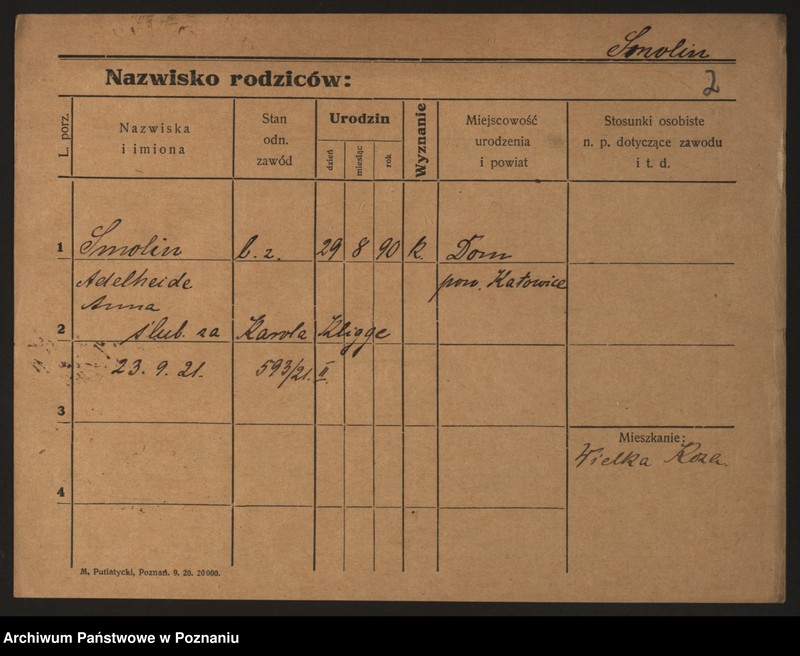 Smolin
2
Nazwisko rodziców:
L. porz.
Nazwiska
i imiona
Stan
odn.
zawód
Urodzin
dzień
miesiąc
rok
Wyznanie
Miejscowość
urodzenia
i powiat
Stosunki osobiste
n. p. dotyczące zawodu
i t. d.
1 Smolin b. z. 29 8 90 k. Dom
Adelheide pow. Katowice
Anna
2 ślub. za Karola Kligge
23. 9. 21. 593/21. II.
3
Mieszkanie:
Wielka
4
M. Putiatycki, Poznań. 9. 20. 20000.
Archiwum Państwowe w Poznaniu